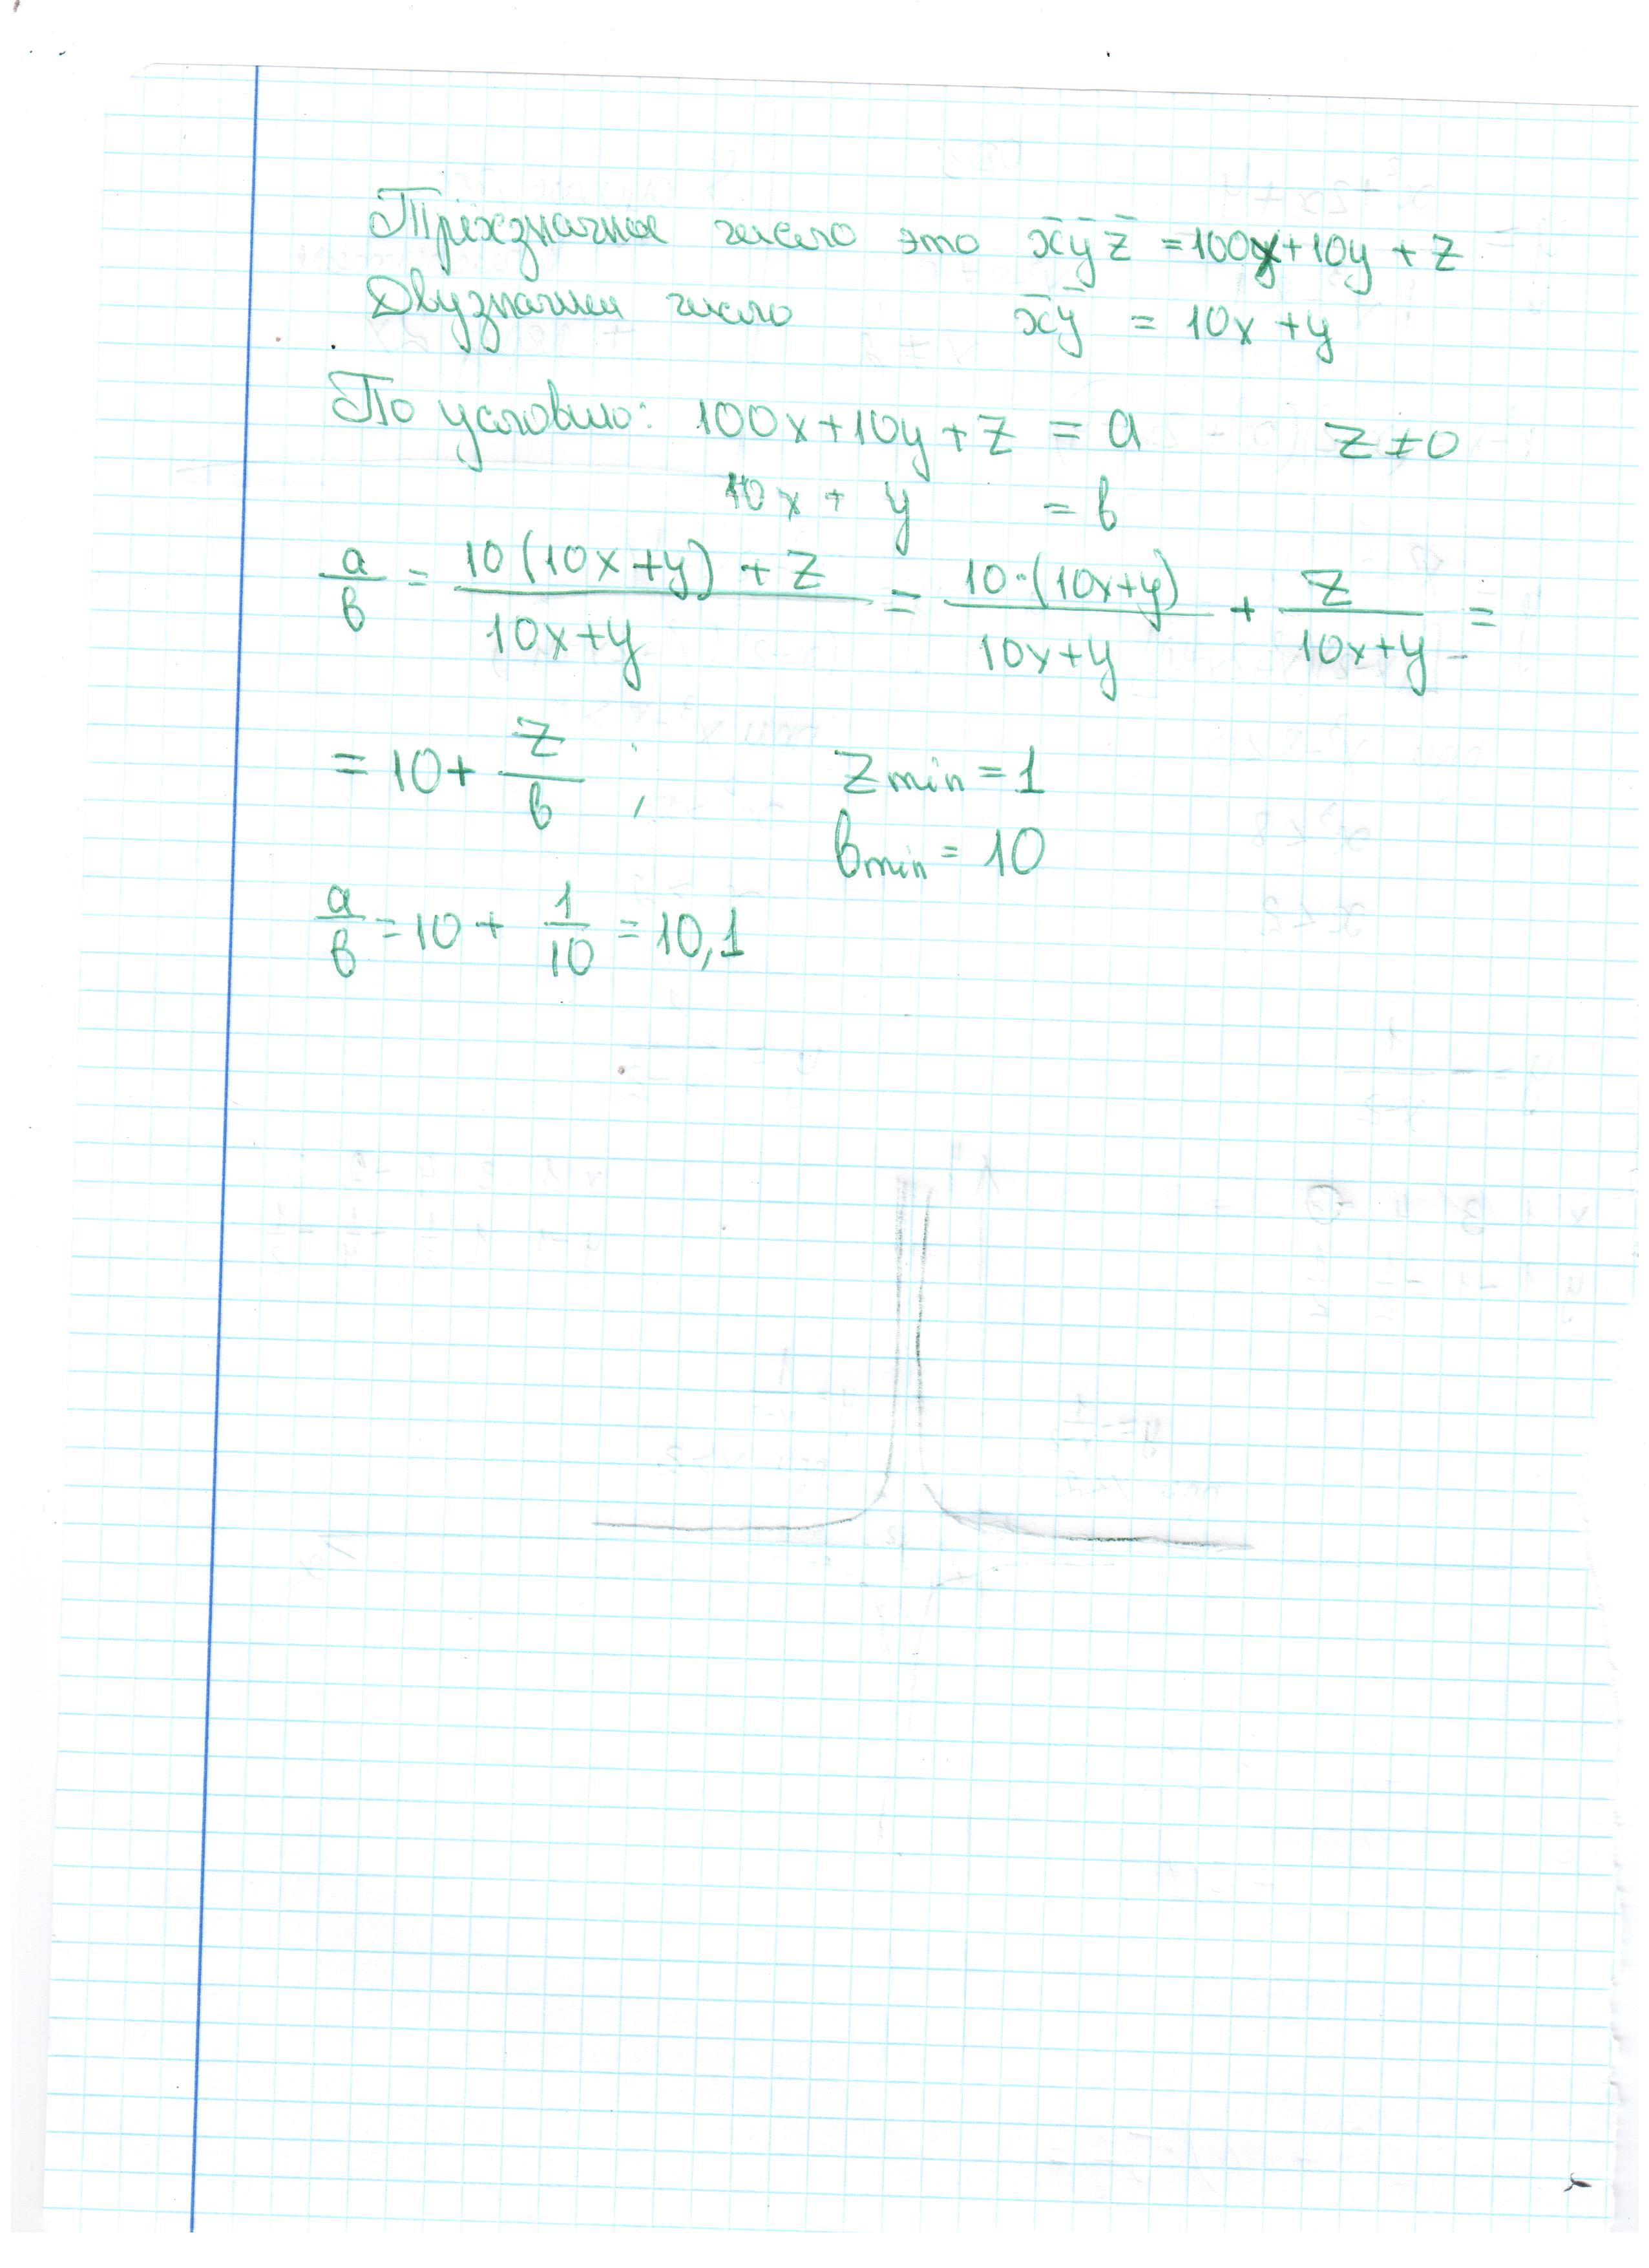 Трёхзначное число это x̅ y̅ z̅ = 100x + 10y + z
Двузначное число x̅y̅ = 10x + y
По условию: 100x + 10y + z = a z ≠ 0
10x + y = в
a/в = (10(10x+y) + z)/(10x+y) = (10·(10x+y))/(10x+y) + z/(10x+y) =
= 10 + z/в ; z min = 1
в min = 10
a/в = 10 + 1/10 = 10,1